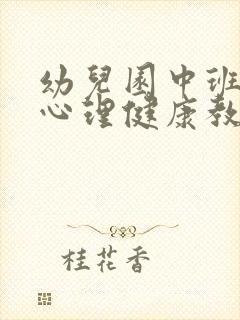 幼兒園中班
心理健康教
桂花香